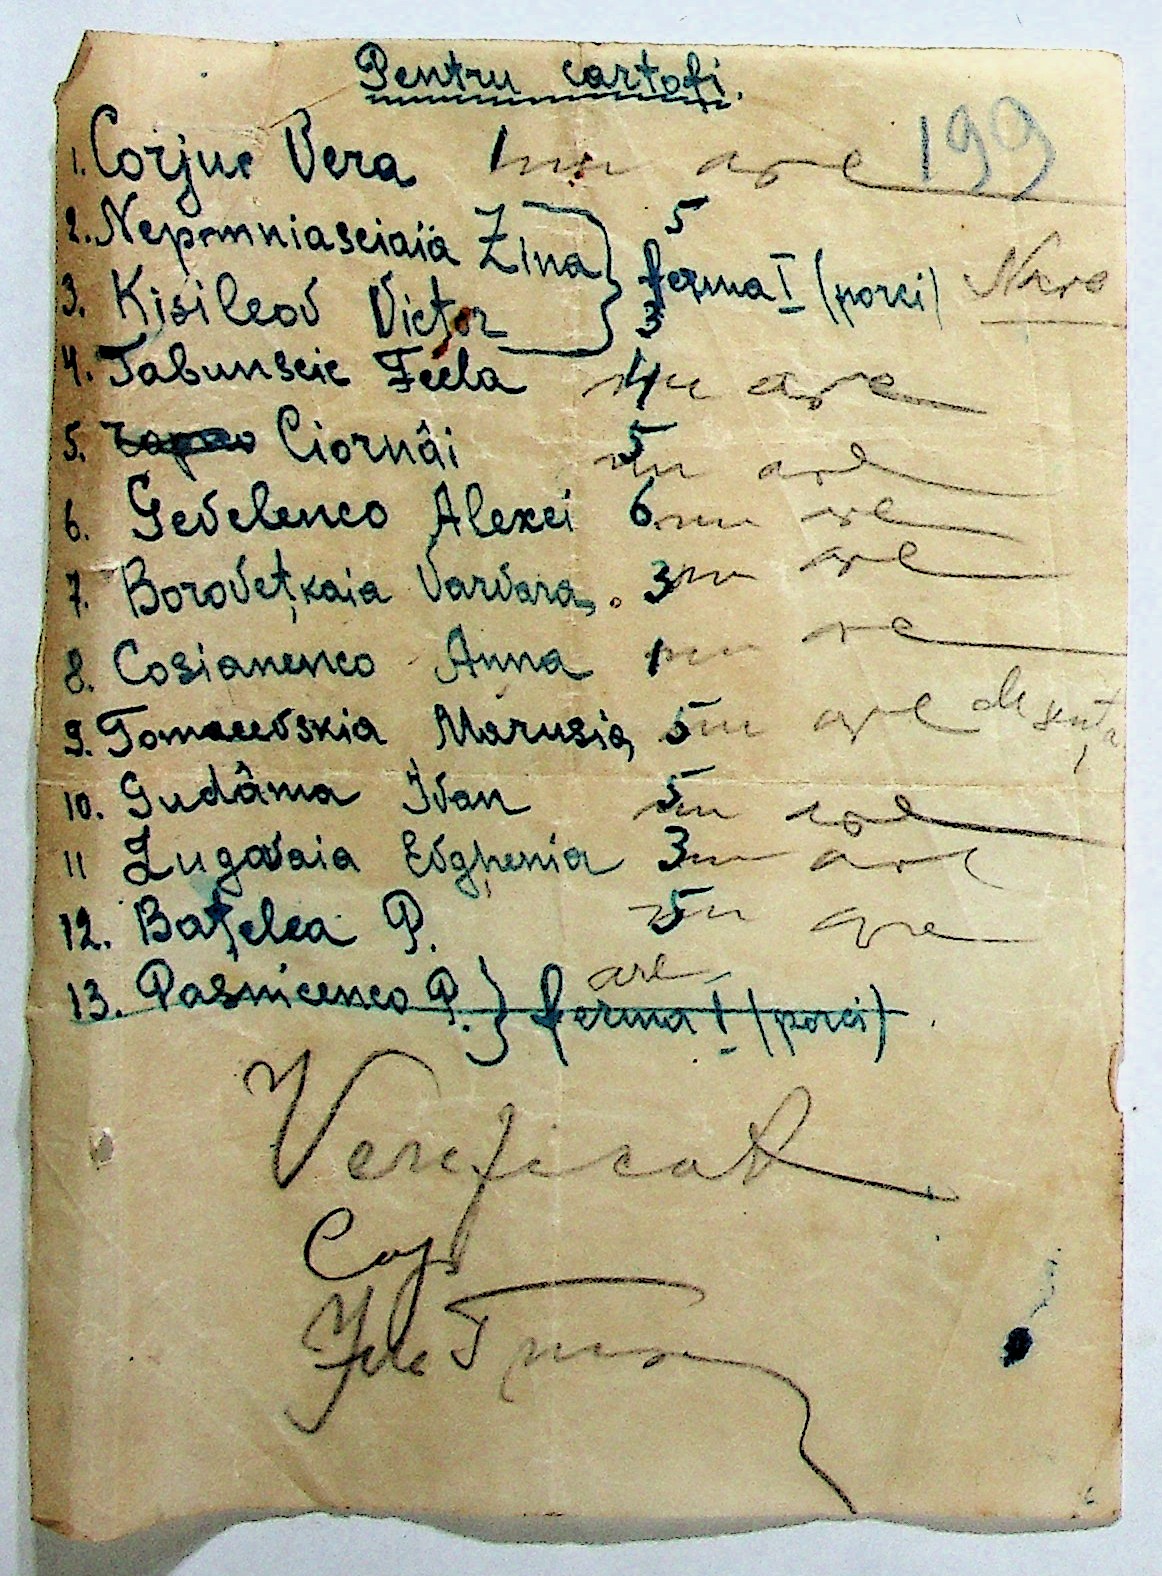 Pentru cartofi.
199
1. Corjuc Vera 1 nu are
2. Nepomniasciaiă Zina } 5
ferma I (porci)
3. Kisileov Victor } 3
4. Tabunscic Feela 4 nu are
5. Ciornâi 5 nu are
6. Gevelenco Alexei 6 nu are
7. Borovețkaia Varvara 3 nu are
8. Cosianenco Anna 1 nu are
9. Tomacevskia Marusia 5 nu are
10. Gudâma Ivan 5 nu are
11 Lugovaia Evghenia 3 nu are
12. Bațelea P. 5 nu are
13. Pasnicenco P. } ferma I (porci)
are
Verificat